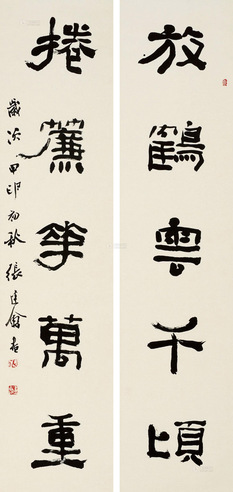 放鶴雲千頃
捲簾花萬重
歲次甲申初秋張建會書